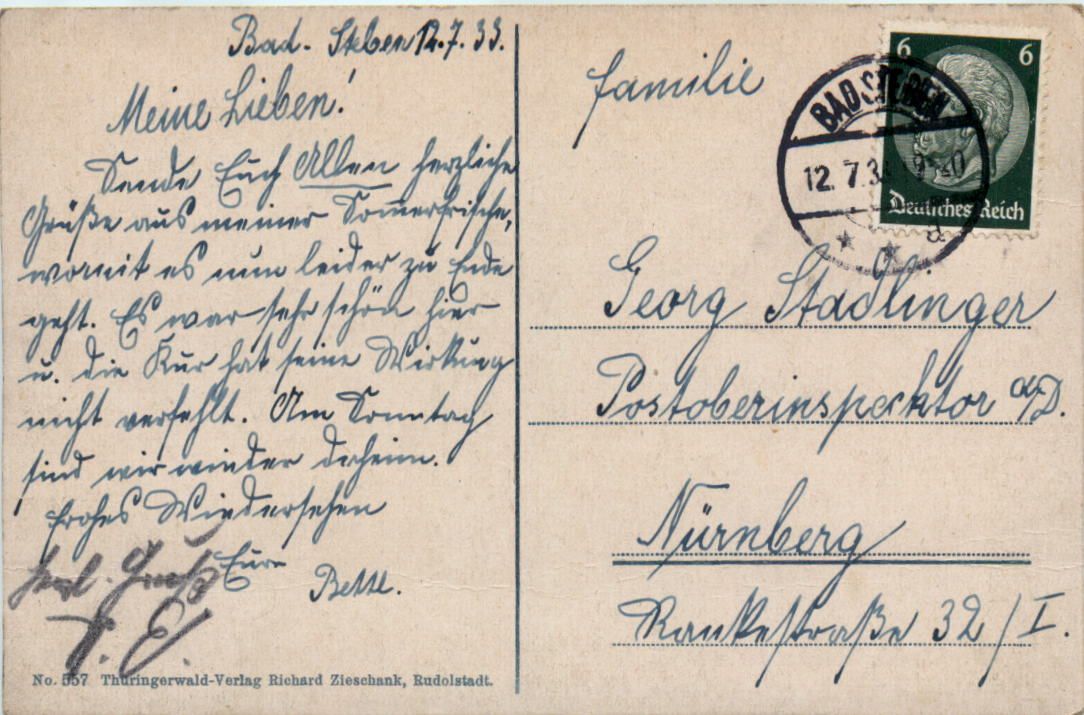 Bad-Steben 12.7.33.
Meine Lieben!
Sende Euch Allen herzliche
Grüße aus meiner Sommerfrische,
womit es nun leider zu Ende
geht. Es war sehr schön hier
u. die Kur hat seine Wirkung
nicht verfehlt. Am Sonntag
sind wir wieder daheim.
Frohes Wiedersehen
Eure
Bettl.
Herzl. Gruß
E.
No. 557 Thüringerwald-Verlag Richard Zieschank, Rudolstadt.
6 6
Deutsches Reich
BAD STEBEN
12. 7. 3
d
Familie
Georg Stadlinger
Postoberinspektor a/D.
Nürnberg
Rankestraße 32/I.